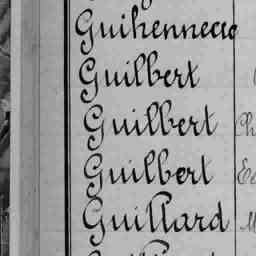 Guihenneuc
Guilbert
Guilbert Ch
Guilbert
Guillard